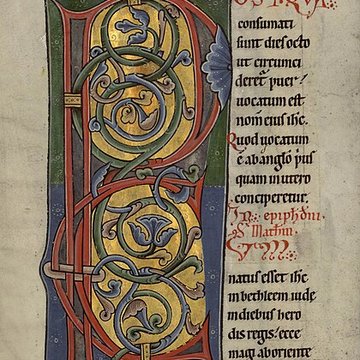 POSTQVA
consumati
sunt dies octo
ut circumci
deret᷑ puer᷑
uocatum est
nomen eius ihc̅.
Quod uocatum
ē ab angło p̄us
quam in utero
conciperetur.
In epiphani
S Mathm̄
CVM
natus esset ihc̅
in bethleem iude
in diebus hero
dis regis; ecce
magi ab oriente